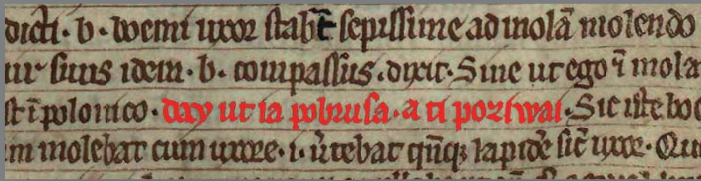 dicti · b · woemi uxor stabat sepissime ad molā molendo
ur suus idem · b · compassus · dixit · Sine ut ego ī mola
st ī polonico · day ut ia pobrusa · a ti poziwai · Sic iste bo
m molebat cum uxore · i · v̄tebat qn̄qz lapidē sic̄ uxor · Qu